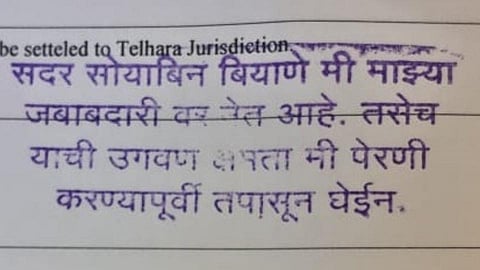 be setteled to Telhara Jurisdiction.
सदर सोयाबिन बियाणे मी माझ्या
जबाबदारी वर नेत आहे. तसेच
याची उगवण क्षमता मी पेरणी
करण्यापूर्वी तपासून घेईन.